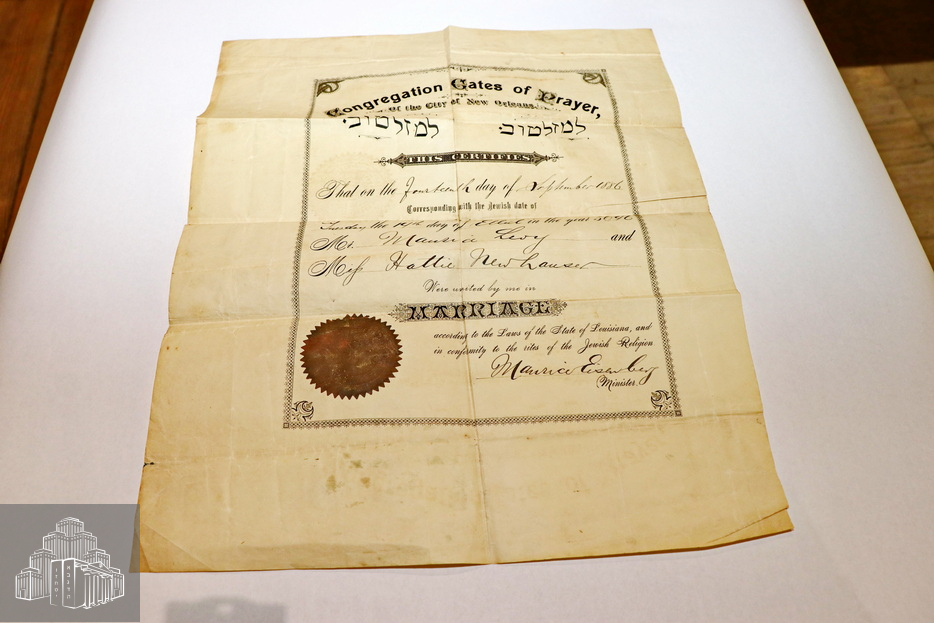 Congregation Gates of Prayer,
Of the City of New Orleans.
למזל טוב: למזל טוב:
THIS CERTIFIES
That on the fourteenth day of September 1886
Corresponding with the Jewish date of
Tuesday the 14th day of Ellul in the year 5646
Mr. Maurice Levy and
Miss Hattie Newhauser
Were united by me in
MARRIAGE
according to the Laws of the State of Louisiana, and
in conformity to the rites of the Jewish Religion
Maurice Eisenberg
Minister.